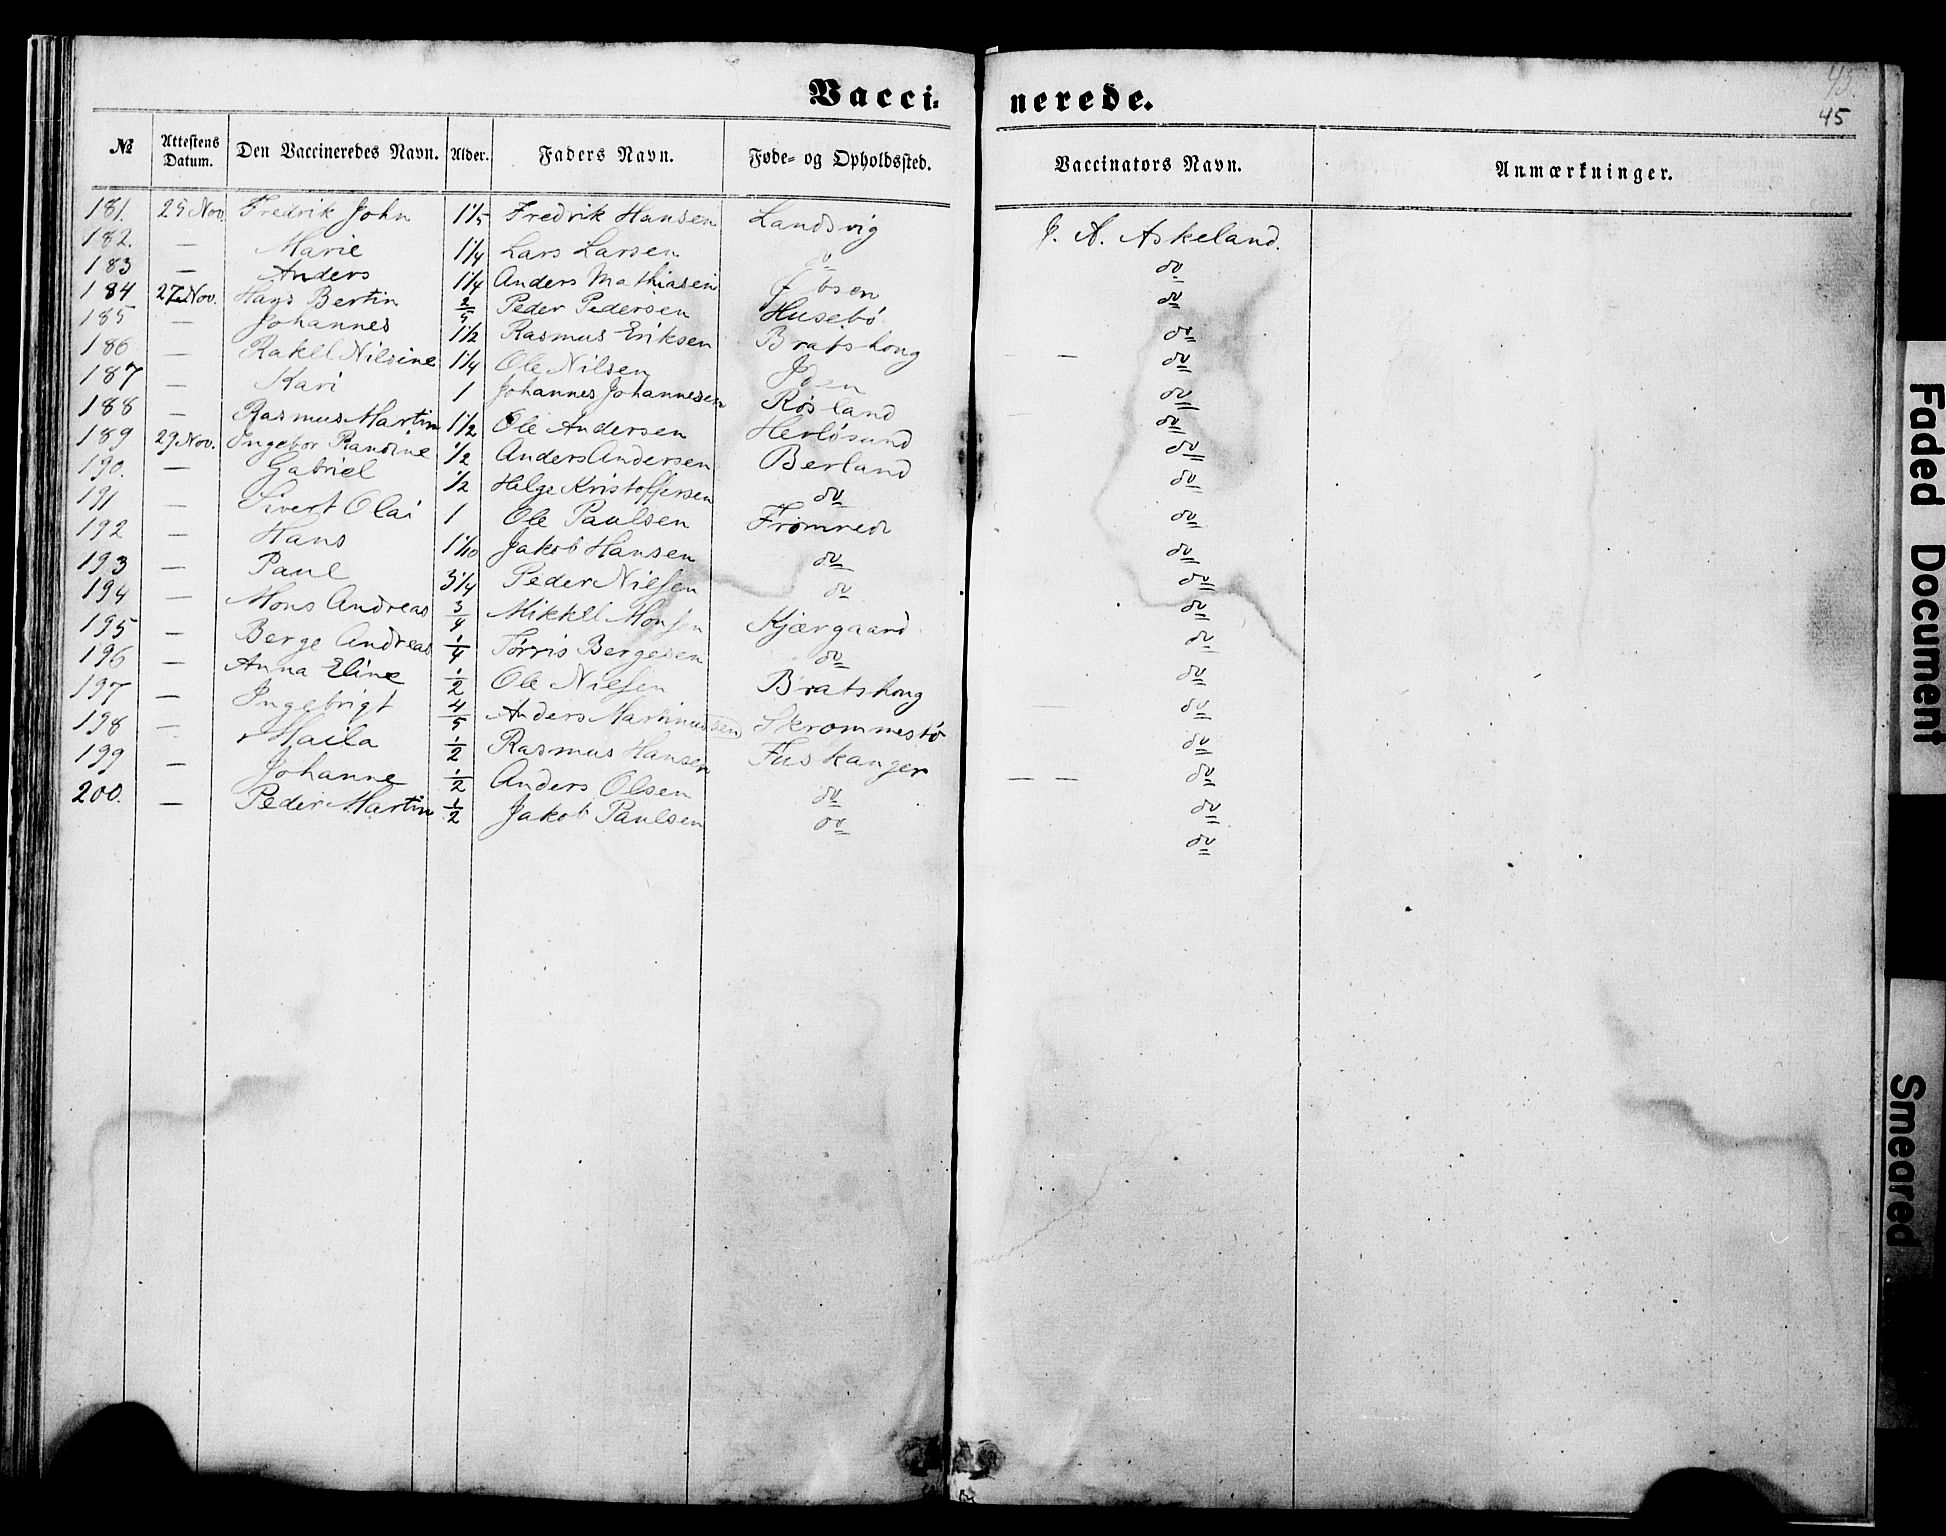 Vaccinerede.
45.
45
№ Attestens Datum. Den Vaccineredes Navn. Alder. Faders Navn. Føde- og Opholdssted. Vaccinators Navn. Anmærkninger.
181. 25 Nov. Fredrik John 1 1/5 Fredrik Hansen Landsvig J. A. Askeland.
182. — Marie 1 1/4 Lars Larsen do do
183 — Anders 1 1/4 Anders Mathiasen do
184 27 Nov. Hans Bertin 2/5 Peder Pedersen Husebö do
185 — Johannes 1 1/2 Rasmus Eriksen Bratshoug do
186 — Rakel Nilsine 1 1/4 Ole Nilsen do
187 — Kari 1 Johannes Johannesen Rösland do
188 — Rasmus Martin 1 1/2 Ole Andersen Herlösund do
189 29 Nov. Ingebor Randine 1/2 Anders Andersen Berland do
190. — Gabriel 1/2 Helge Kristoffersen do do
191 — Sivert Olai 1 Ole Paulsen Fromrede do
192 — Hans 1 1/10 Jakob Hansen do do
193 — Paul 3 1/4 Peder Nielsen do do
194 — Mons Andreas 3/4 Mikkel Monsen Kjærgaard do
195 — Berge Andreas 1/4 Törris Bergesen do do
196 — Anna Eline 1/2 Ole Nielsen Bratshoug do
197 — Ingebrigt 4/5 Anders Martinussen Skrommestö do
198 — Maila 1/2 Rasmus Hansen Fuskanger do
199 — Johanne 1/2 Anders Olsen do do
200. — Peder Martin 1/2 Jakob Paulsen do do
Faded Document
Smeared